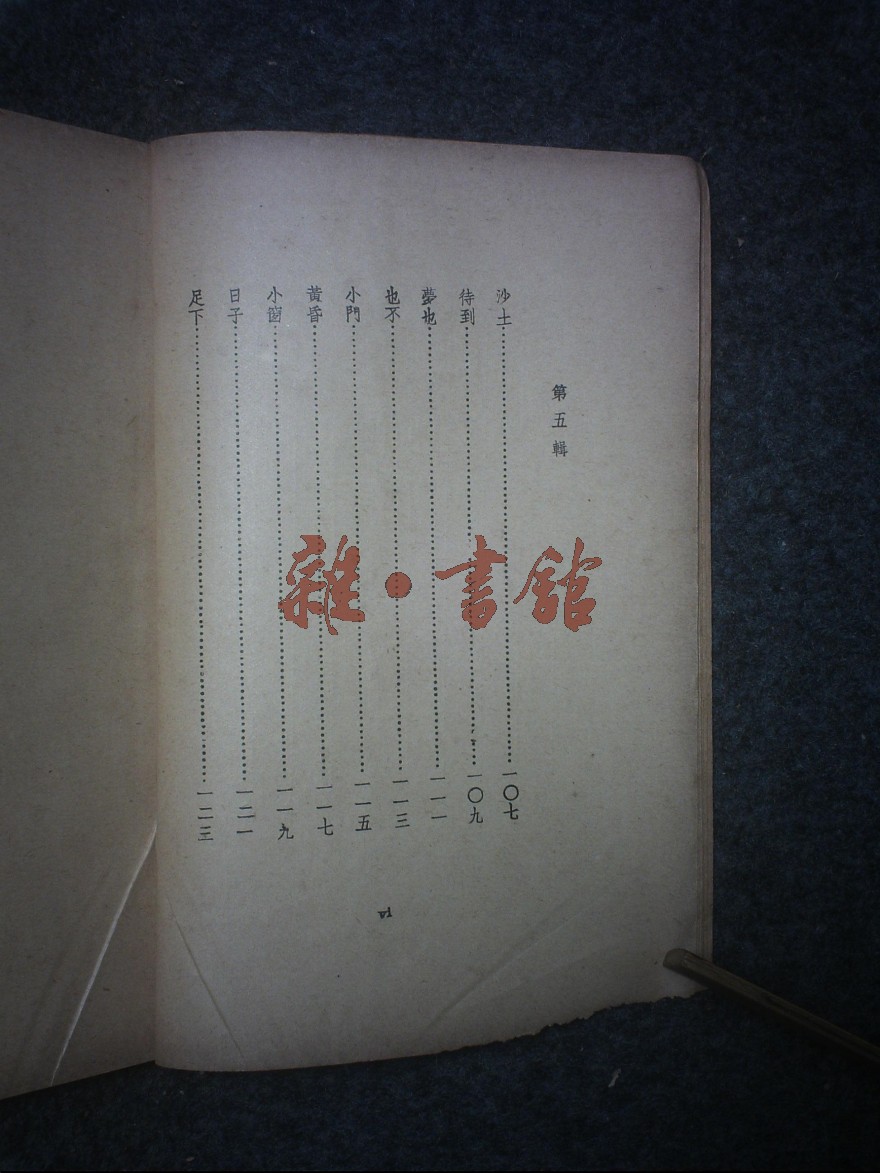 第五輯
沙土……一〇七
待到……一〇九
夢也……一一一
也不……一一三
小門……一一五
黃昏……一一七
小窗……一一九
日子……一二一
足下……一二三
vi
雜·書館